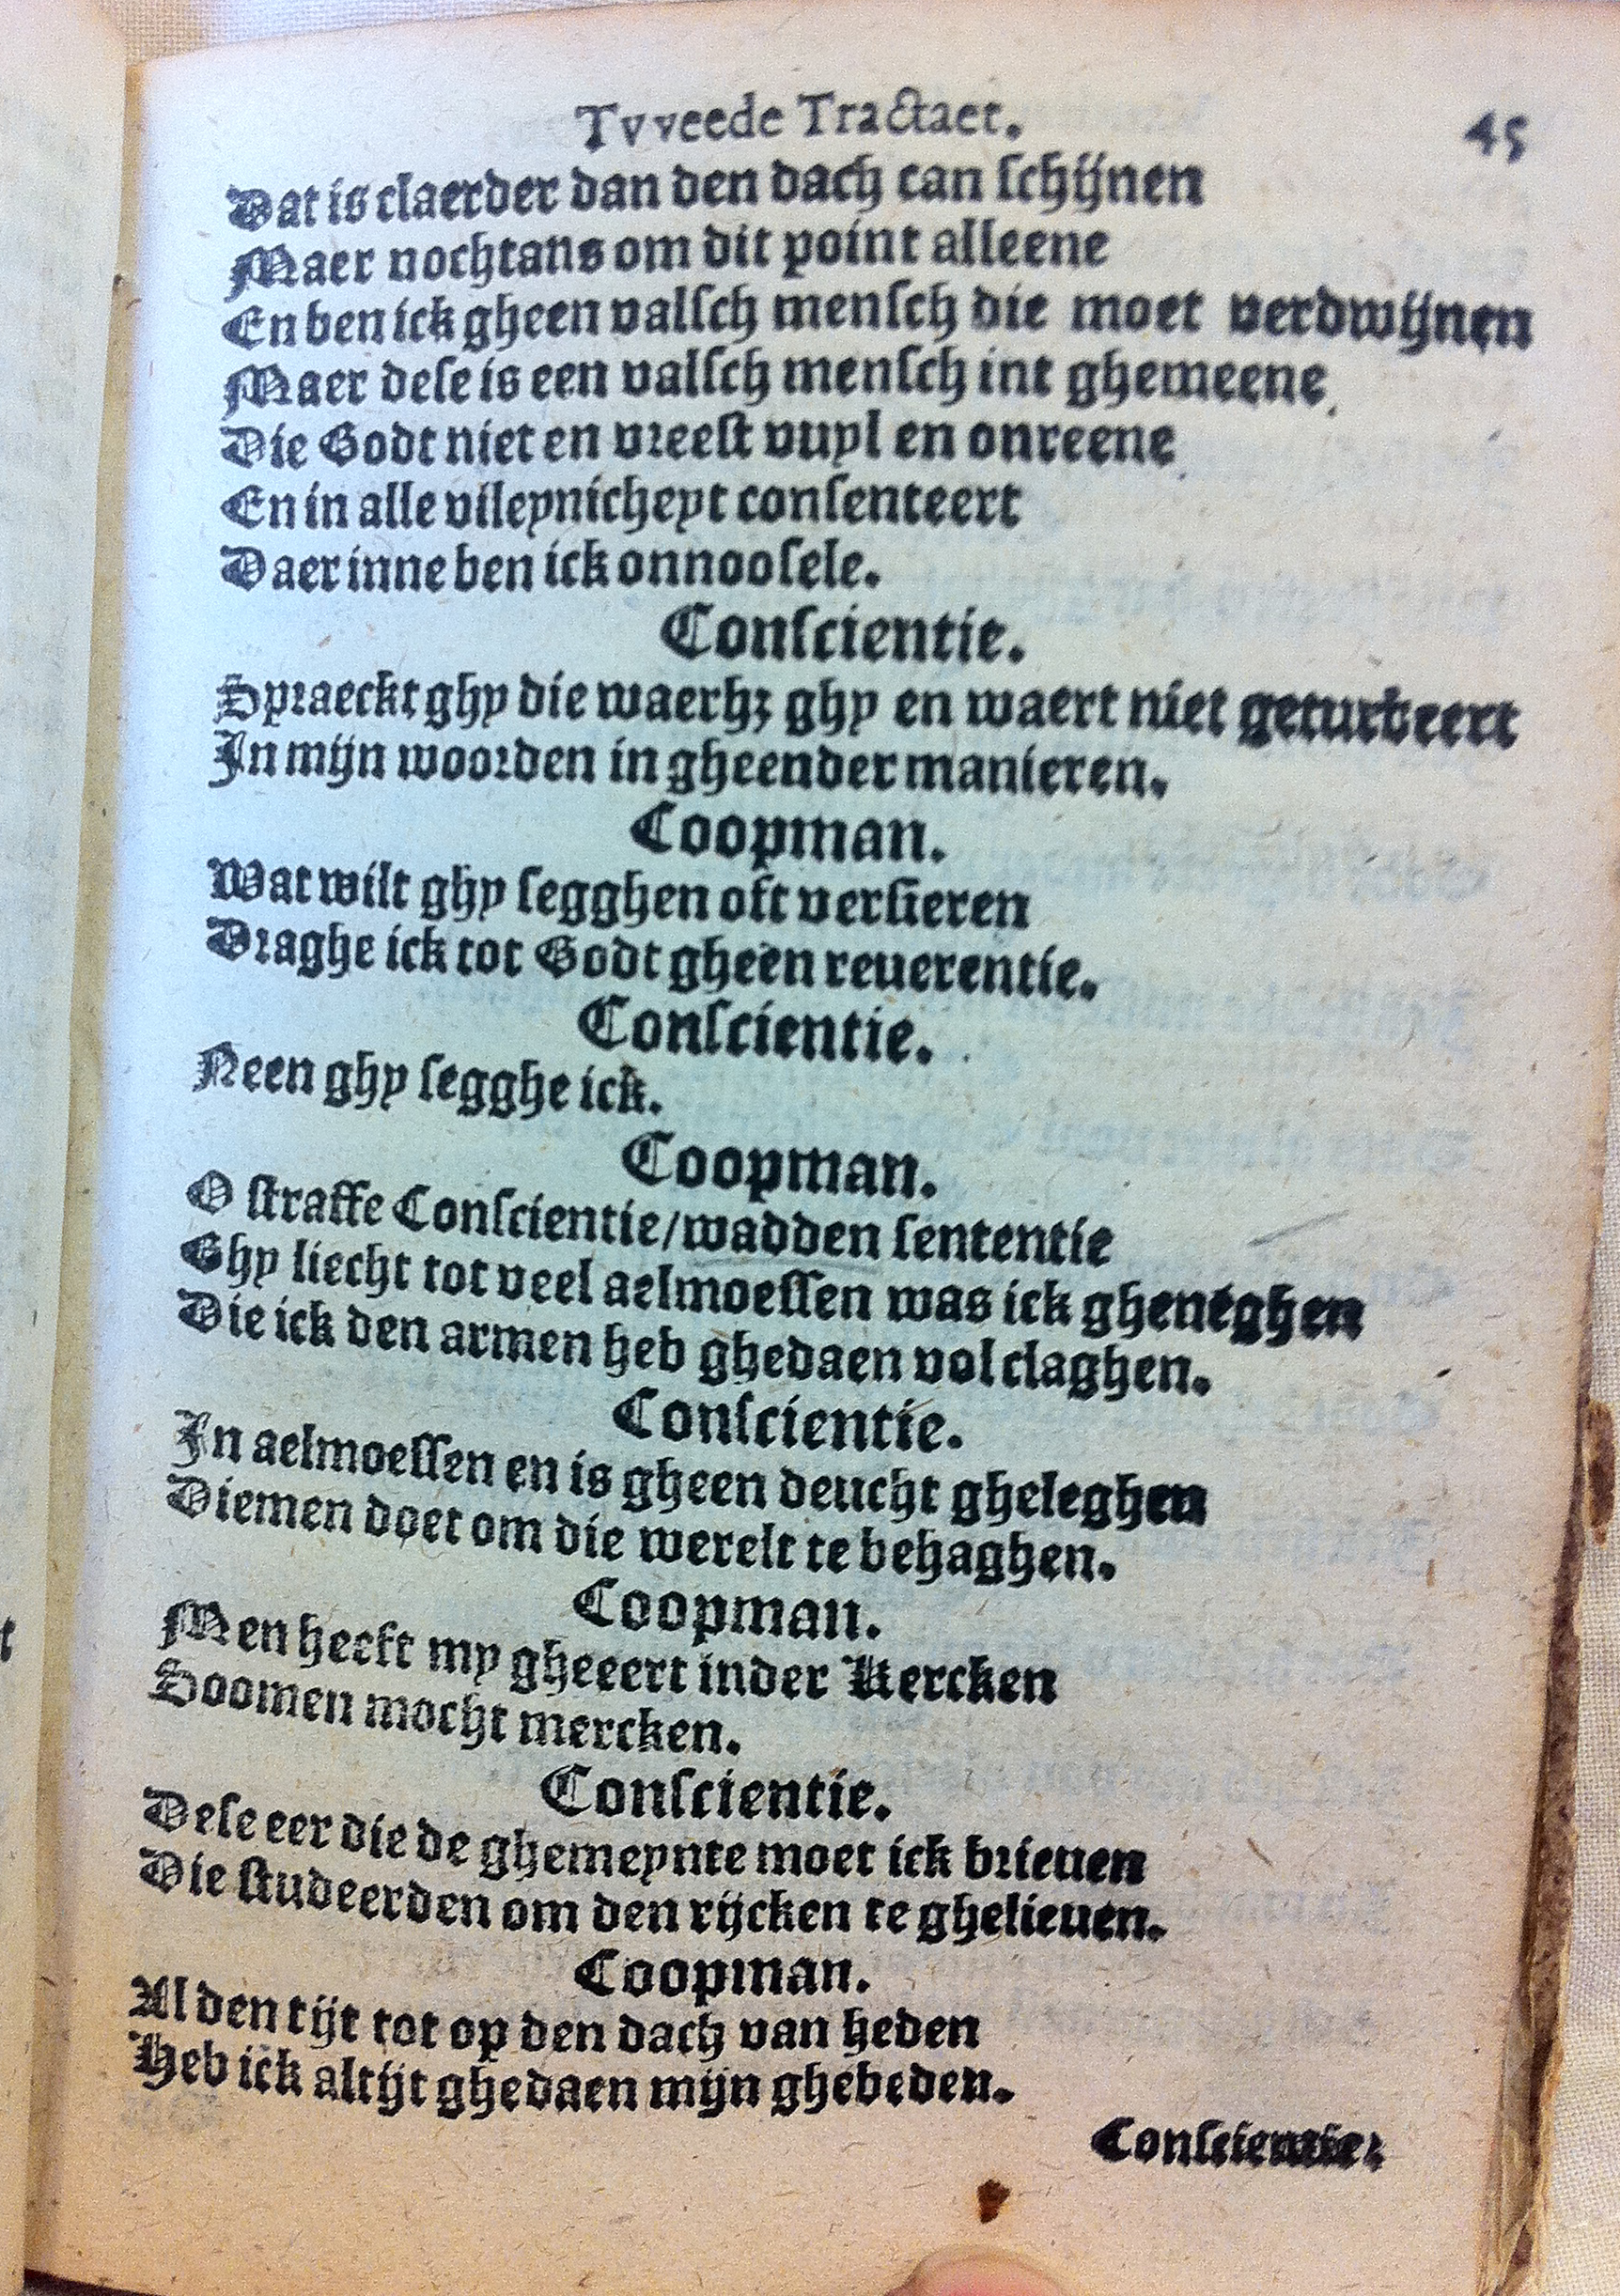 Tvveede Tractaet. 45
Dat is claerder dan den dach can ſchijnen
Maer nochtans om dit point alleene
En ben ick gheen valſch menſch die moet verdwijnen
Maer deſe is een valſch menſch int ghemeene
Die Godt niet en vreeſt vuyl en onreene
En in alle vileynicheyt conſenteert
Daer inne ben ick onnooſele.
Conſcientie.
Spraeckt ghy die waerhʒ ghy en waert niet geturbeert
In mijn woorden in gheender manieren.
Coopman.
Wat wilt ghy ſegghen oft verſieren
Draghe ick tot Godt gheen reuerentie.
Conſcientie.
Neen ghy ſegghe ick.
Coopman.
O ſtraffe Conſcientie/wadden ſententie
Ghy liecht tot veel aelmoeſſen was ick gheneghen
Die ick den armen heb ghedaen vol claghen.
Conſcientie.
In aelmoeſſen en is gheen deucht gheleghen
Diemen doet om die werelt te behaghen.
Coopman.
Men heeft my gheeert inder Kercken
Soomen mocht mercken.
Conſcientie.
Deſe eer die de ghemeynte moet ick brieuen
Die ſtudeerden om den rijcken te ghelieuen.
Coopman.
Al den tijt tot op den dach van heden
Heb ick altijt ghedaen mijn ghebeden.
Conſcientie.
t